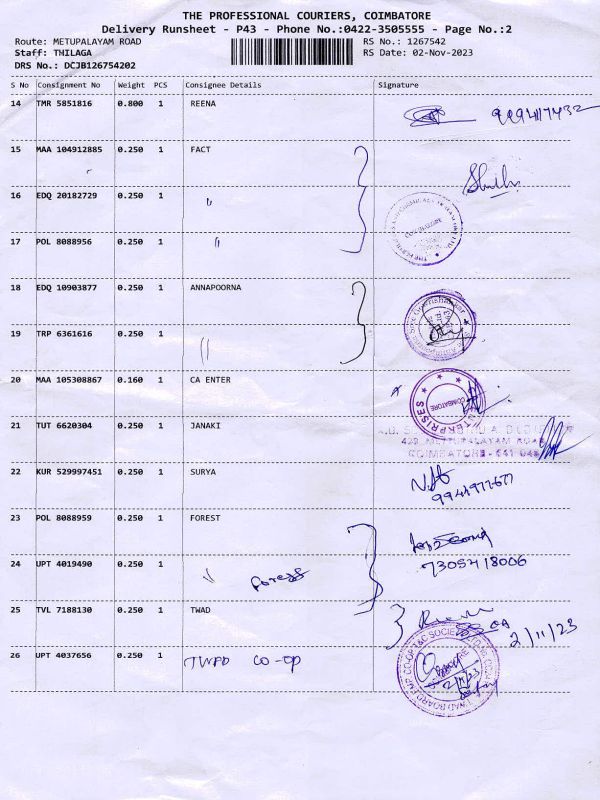 THE PROFESSIONAL COURIERS, COIMBATORE
Delivery Runsheet - P43 - Phone No.:0422-3505555 - Page No.:2
Route: METUPALAYAM ROAD RS No.: 1267542
Staff: THILAGA RS Date: 02-Nov-2023
DRS No.: DCJB126754202
S No Consignment No Weight PCS Consignee Details Signature
14 TMR 5851816 0.800 1 REENA
15 MAA 104912885 0.250 1 FACT
16 EDQ 20182729 0.250 1 "
COIMBATORE
17 POL 8088956 0.250 1 "
18 EDQ 10903877 0.250 1 ANNAPOORNA
19 TRP 6361616 0.250 1 "
20 MAA 105308867 0.160 1 CA ENTER
COIMBATORE
21 TUT 6620304 0.250 1 JANAKI
METTUPALAYAM ROAD
COIMBATORE - 641 043
22 KUR 529997451 0.250 1 SURYA
23 POL 8088959 0.250 1 FOREST
24 UPT 4019490 0.250 1 Forest
7305418006
25 TVL 7188130 0.250 1 TWAD
2/11/23
26 UPT 4037656 0.250 1 TWAD CO-OP
2/11/23